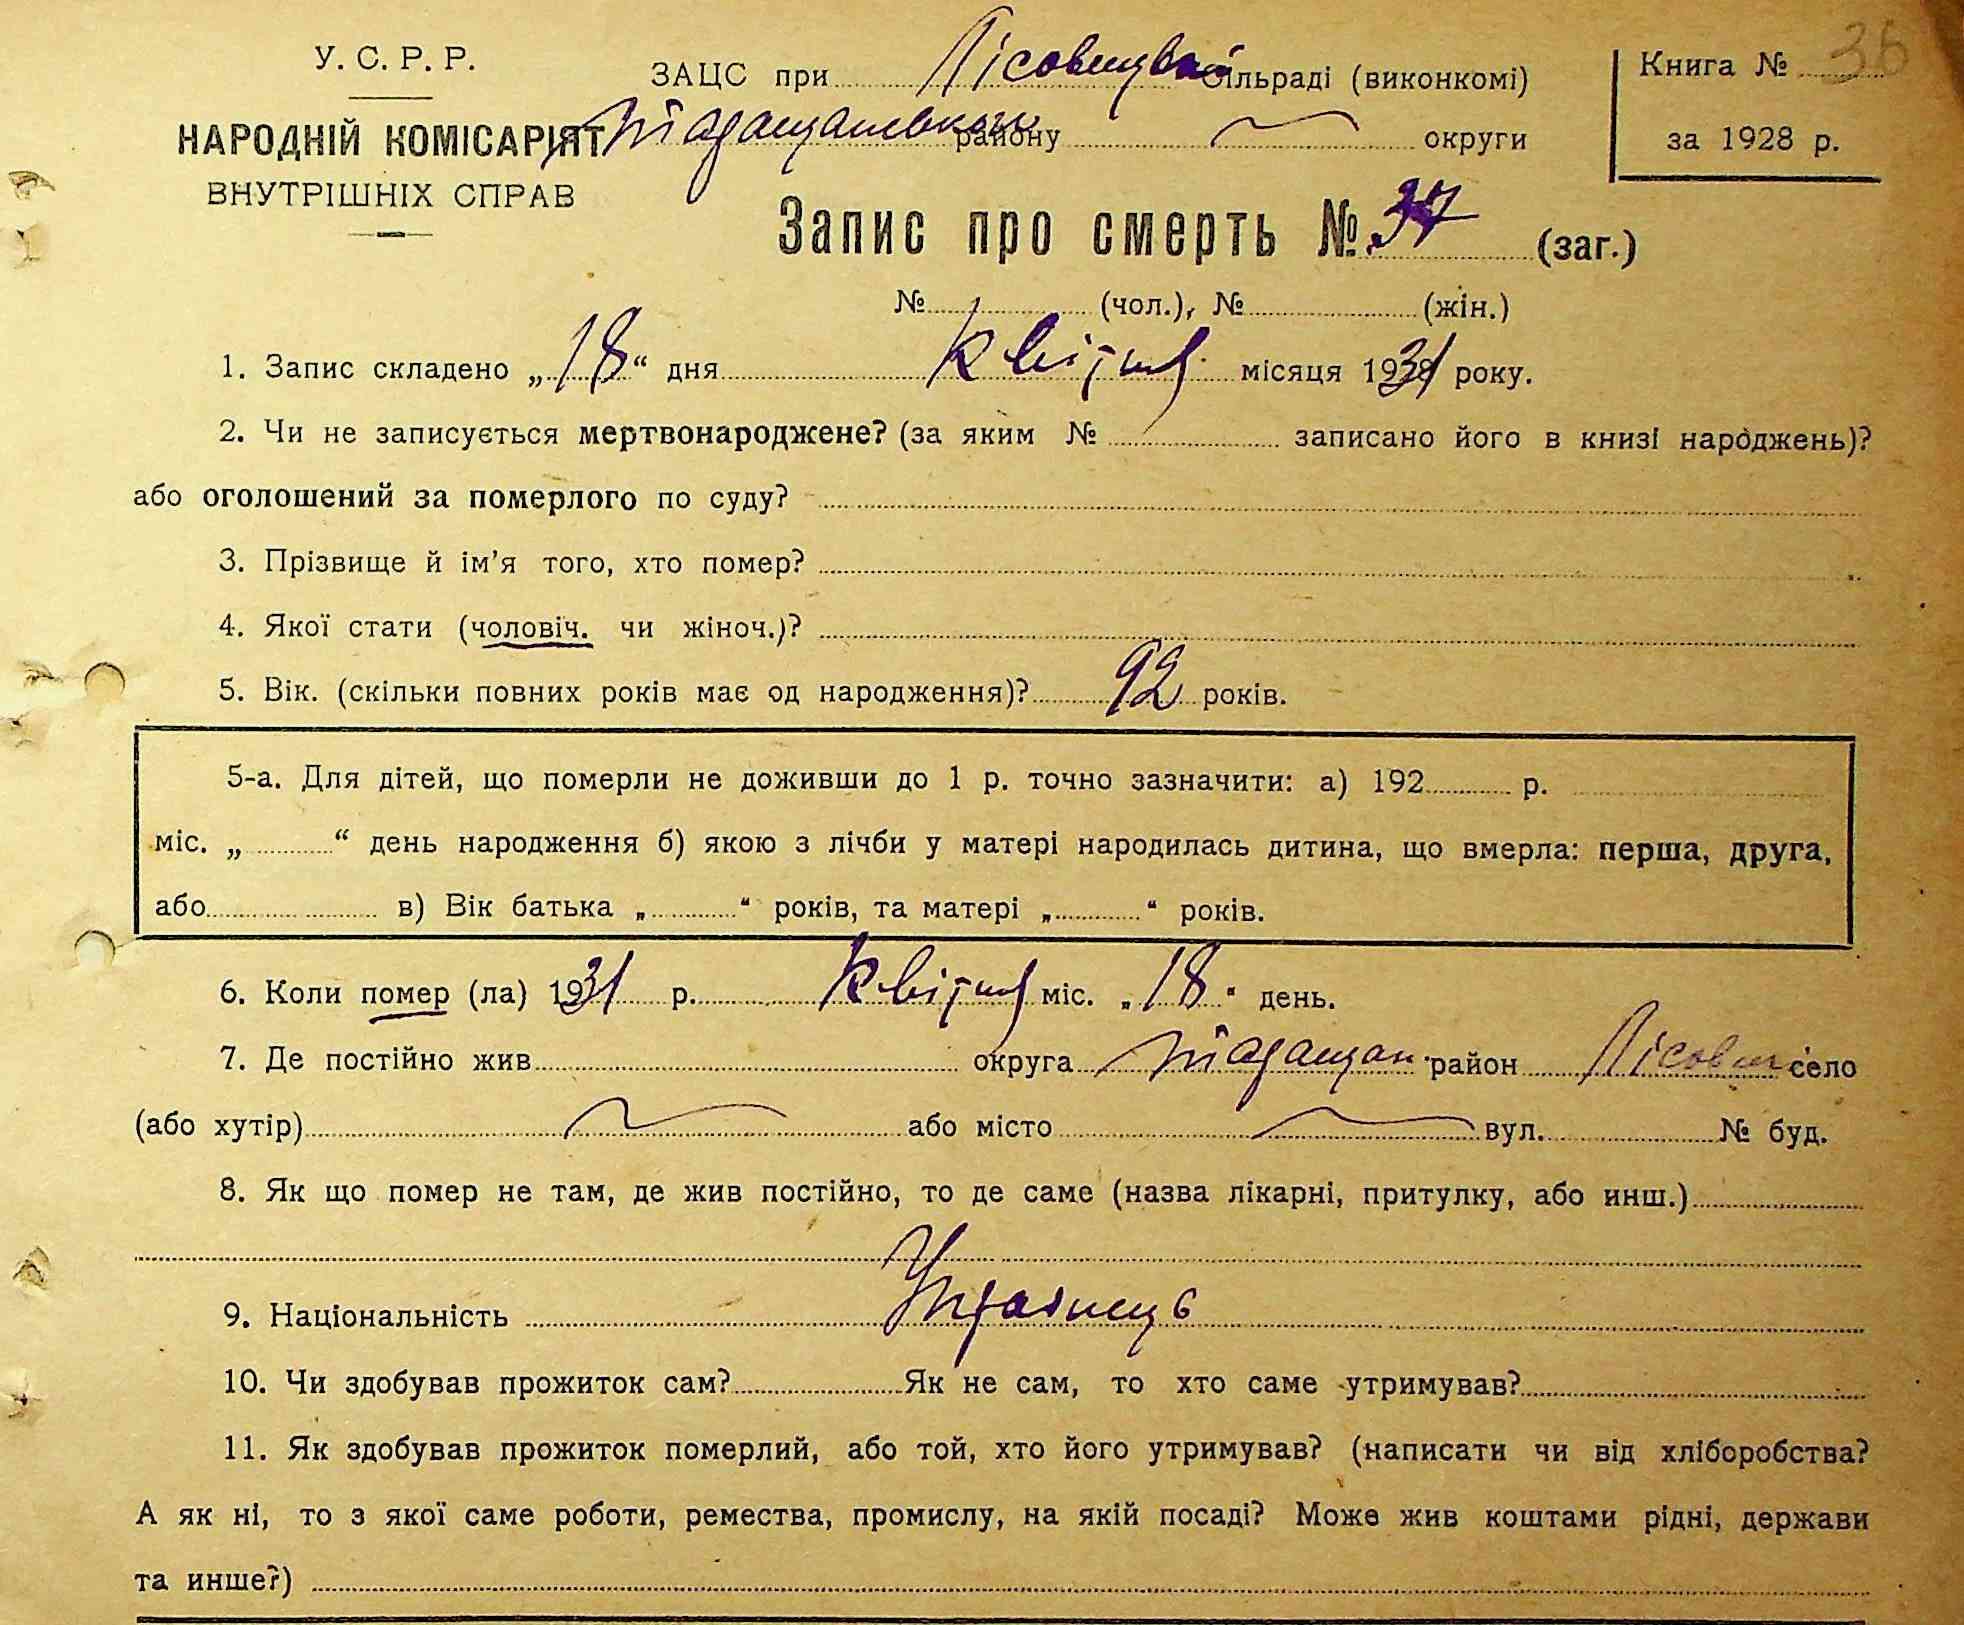 У. С. Р. Р.
НАРОДНІЙ КОМІСАРІЯТ
ВНУТРІШНІХ СПРАВ
ЗАЦС при Лісовицькій сільраді (виконкомі)
Таращанського району округи
Книга № 36
за 1928 р.
Запис про смерть № 37 (заг.)
№ (чол.), № (жін.)
1. Запис складено „18“ дня квітня місяця 1931 року.
2. Чи не записується мертвонароджене? (за яким № записано його в книзі народжень)?
або оголошений за померлого по суду?
3. Прізвище й ім’я того, хто помер?
4. Якої стати (чоловіч. чи жіноч.)?
5. Вік. (скільки повних років має од народження)? 92 років.
5-а. Для дітей, що померли не доживши до 1 р. точно зазначити: а) 192 р.
міс. „ “ день народження б) якою з лічби у матері народилась дитина, що вмерла: перша, друга,
або в) Вік батька „ “ років, та матері „ “ років.
6. Коли помер (ла) 1931 р. квітня міс. „18“ день.
7. Де постійно жив округа Таращан. район Лісович село
(або хутір) або місто вул. № буд.
8. Як що помер не там, де жив постійно, то де саме (назва лікарні, притулку, або инш.)
9. Національність Українець
10. Чи здобував прожиток сам? Як не сам, то хто саме утримував?
11. Як здобував прожиток померлий, або той, хто його утримував? (написати чи від хліборобства?
А як ні, то з якої саме роботи, ремества, промислу, на якій посаді? Може жив коштами рідні, держави
та инше?)